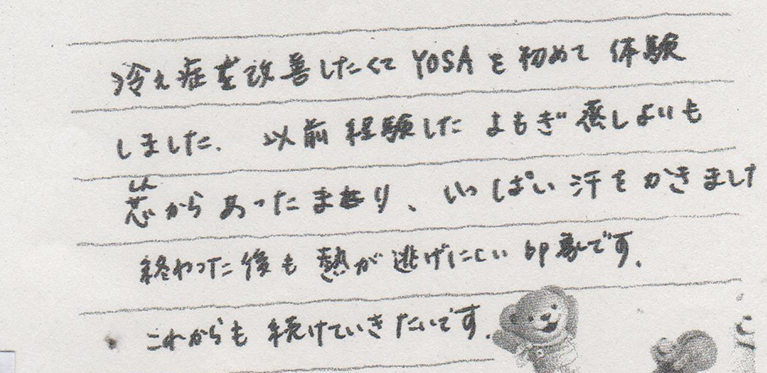 冷え症を改善したくてYOSAを初めて体験
しました. 以前経験したよもぎ蒸しよりも
芯からあったまり、いっぱい汗をかきました
終わった後も熱が逃げにくい印象です.
これからも続けていきたいです.